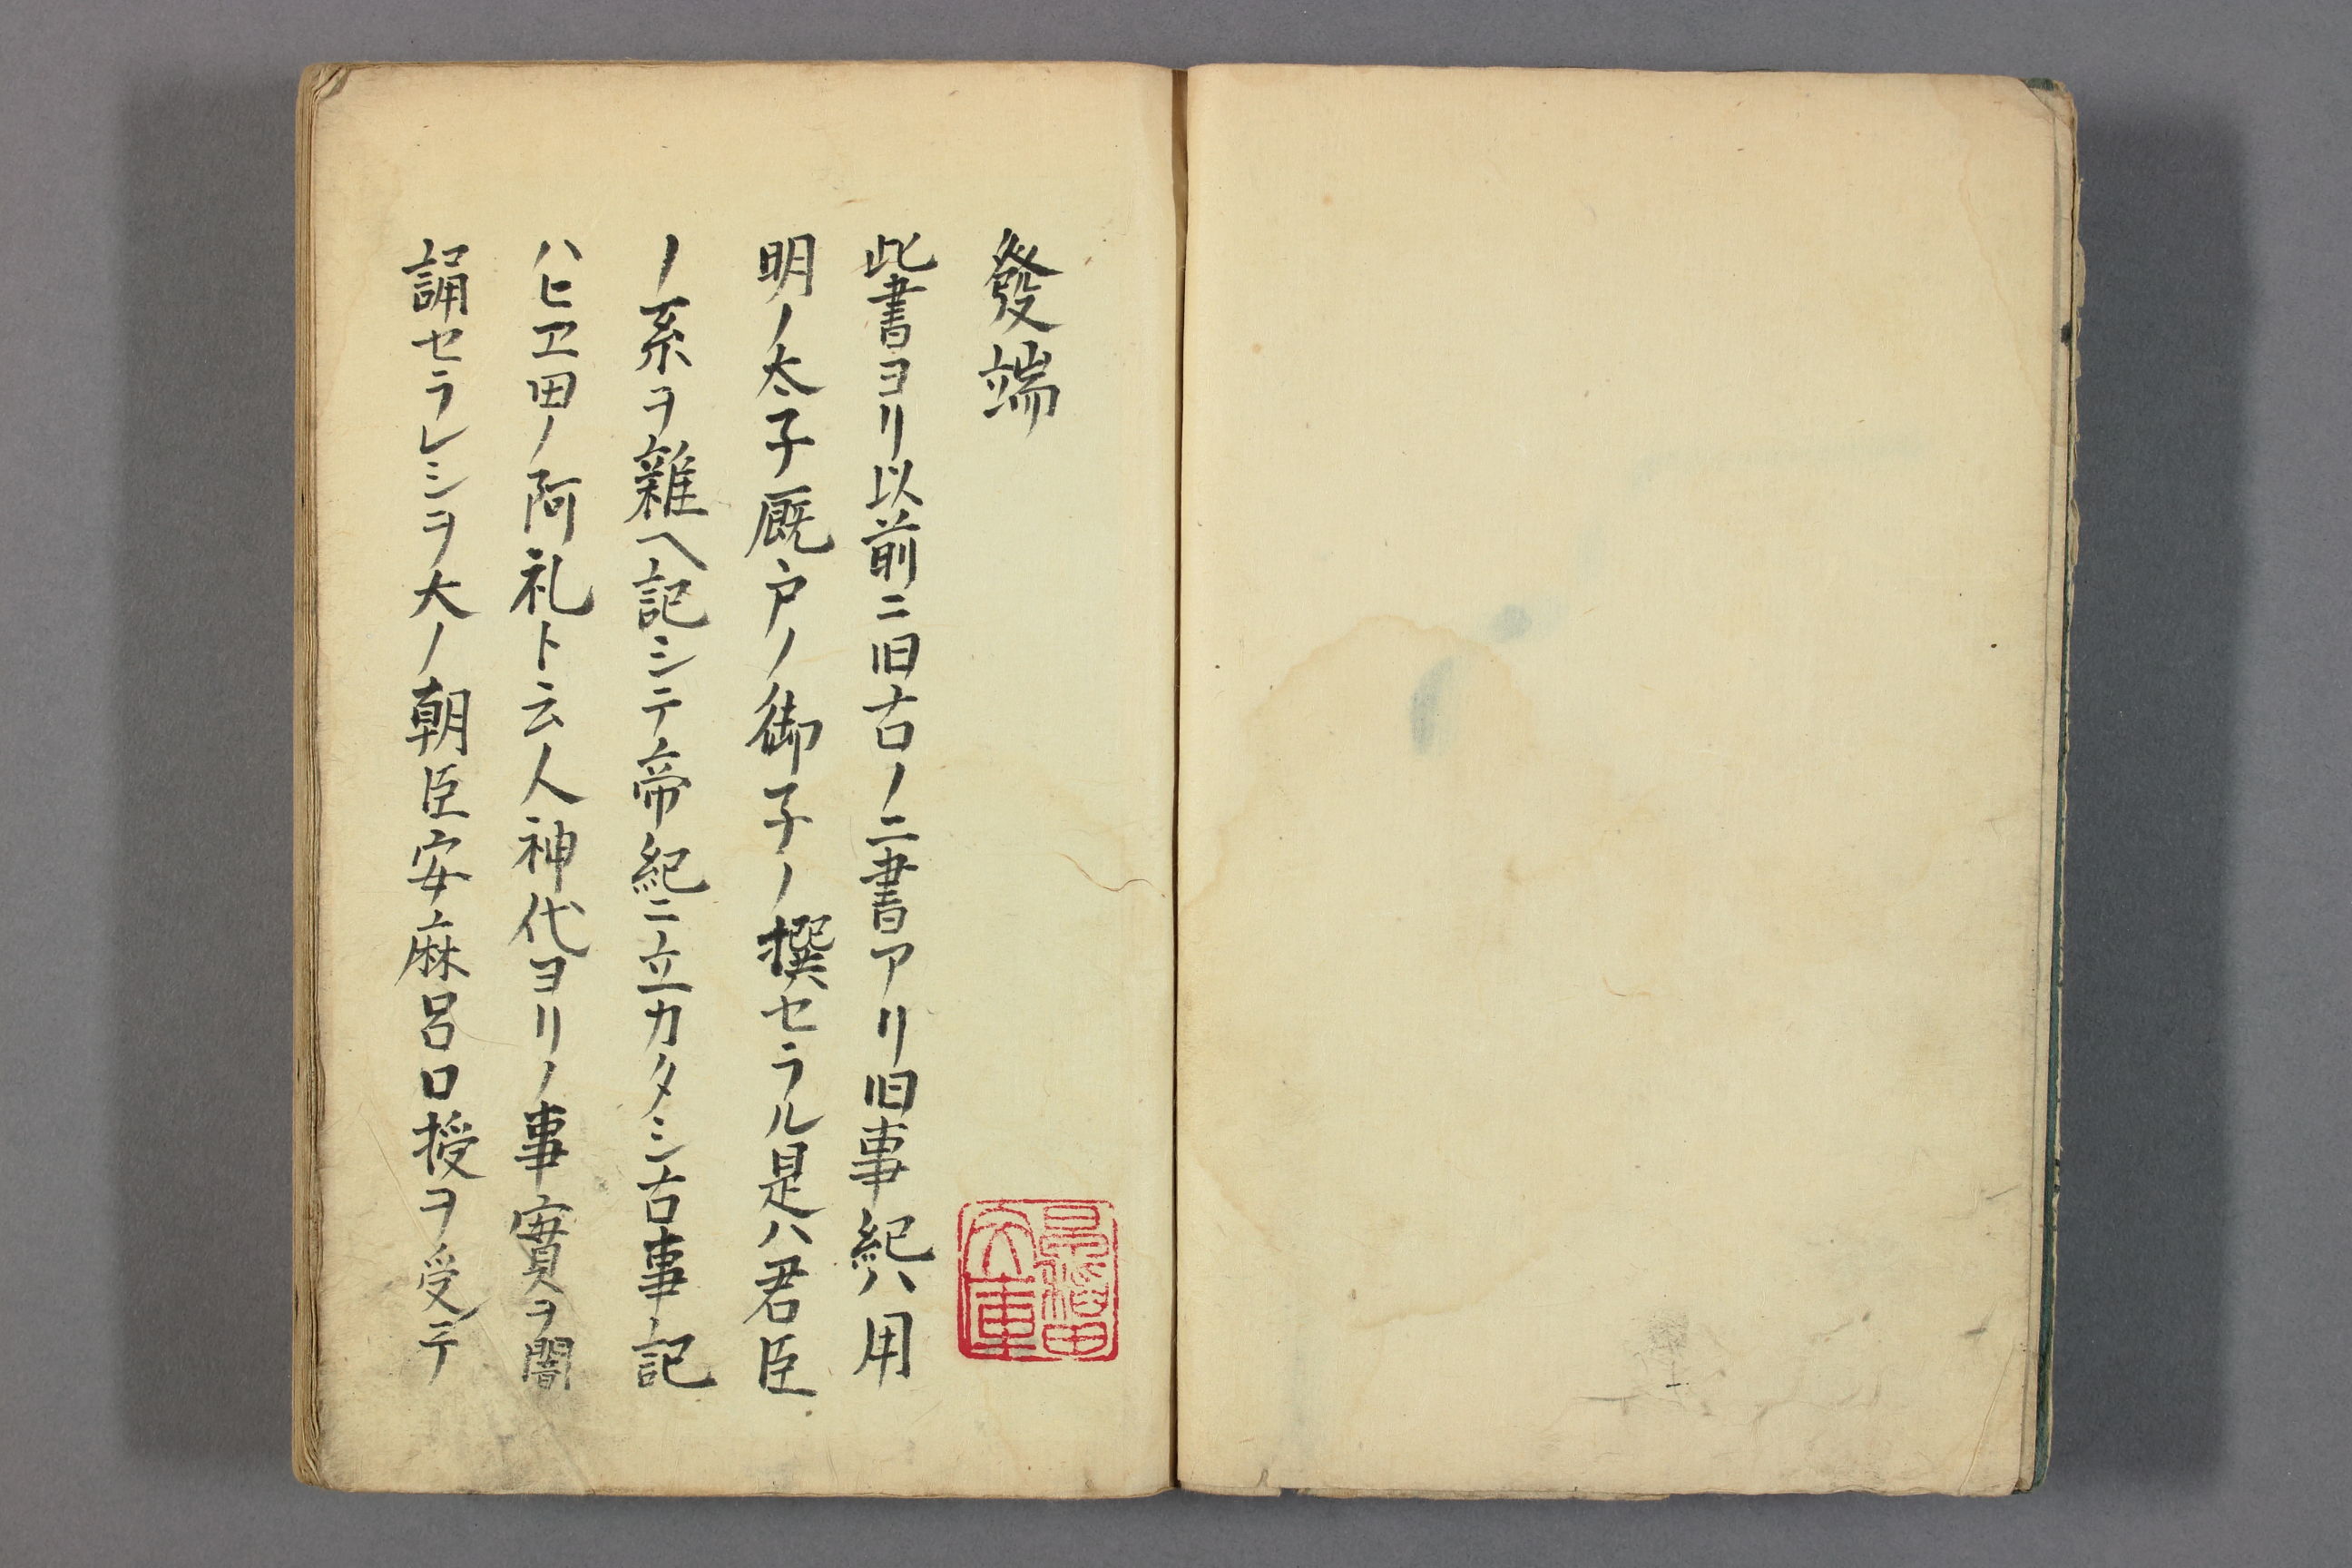 發端
此書ヨリ以前ニ旧古ノ二書アリ旧事紀ハ用
明ノ太子厩戸ノ御子ノ撰セラル是ハ君臣
ノ系ヲ雜ヘ記シテ帝紀ニ立カタシ古事記
ハヒヱ田ノ阿礼ト云人神代ヨリノ事實ヲ闇
誦セラレシヲ大ノ朝臣安麻呂口授ヲ受テ
文庫